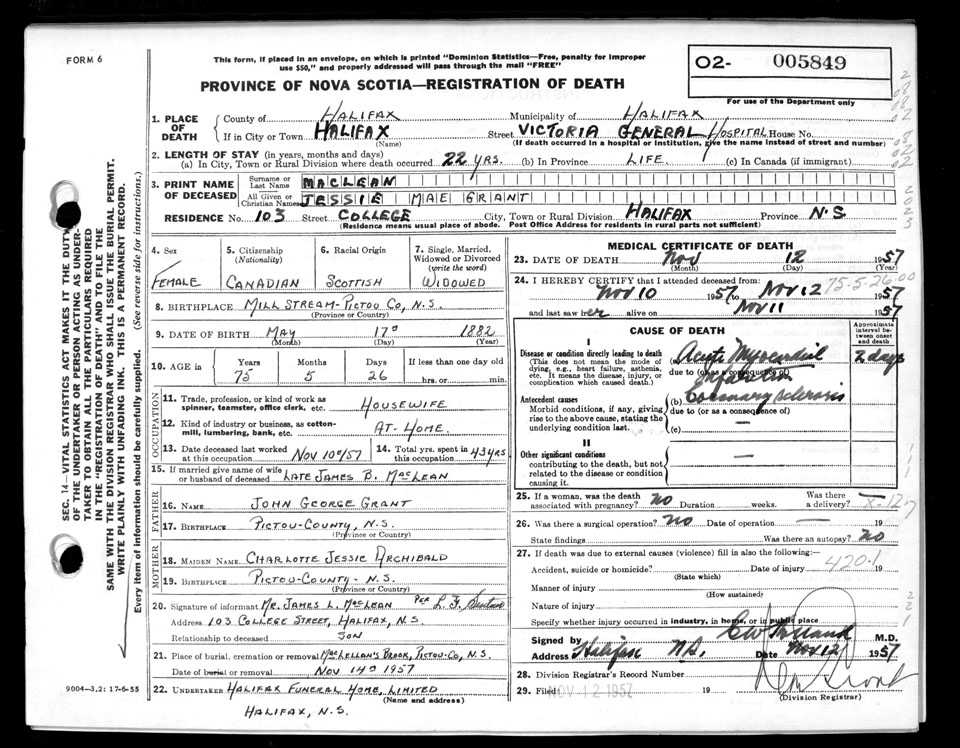 FORM 6
This form, if placed in an envelope, on which is printed "Dominion Statistics—Free, penalty for improper
use $50," and properly addressed will pass through the mail "FREE"
O2- 005849
For use of the Department only
PROVINCE OF NOVA SCOTIA—REGISTRATION OF DEATH
1. PLACE OF DEATH
County of HALIFAX Municipality of HALIFAX
If in City or Town HALIFAX (Name) Street VICTORIA GENERAL HOSPITAL House No.
(If death occurred in a hospital or institution, give the name instead of street and number)
2. LENGTH OF STAY (in years, months and days)
(a) In City, Town or Rural Division where death occurred 22 YRS. (b) In Province LIFE (c) In Canada (if immigrant)
3. PRINT NAME OF DECEASED
Surname or Last Name MACLEAN
All Given or Christian Names JESSIE MAE GRANT
RESIDENCE No. 103 Street COLLEGE City, Town or Rural Division HALIFAX Province N.S
(Residence means usual place of abode. Post Office Address for residents in rural parts not sufficient)
4. Sex FEMALE
5. Citizenship (Nationality) CANADIAN
6. Racial Origin SCOTTISH
7. Single, Married, Widowed or Divorced (write the word) WIDOWED
8. BIRTHPLACE MILL STREAM-PICTOU CO, N.S.
(Province or Country)
9. DATE OF BIRTH MAY 17th 1882
(Month) (Day) (Year)
10. AGE in Years 75 Months 5 Days 26 If less than one day old hrs. or min.
OCCUPATION
11. Trade, profession, or kind of work as spinner, teamster, office clerk, etc. HOUSEWIFE
12. Kind of industry or business, as cotton-mill, lumbering, bank, etc. AT-HOME.
13. Date deceased last worked at this occupation NOV 10th/57
14. Total yrs. spent in this occupation 43 YRS
15. If married give name of wife or husband of deceased LATE JAMES B. MACLEAN
FATHER
16. NAME JOHN GEORGE GRANT
17. BIRTHPLACE PICTOU-COUNTY, N.S.
(Province or Country)
MOTHER
18. MAIDEN NAME CHARLOTTE JESSIE ARCHIBALD
19. BIRTHPLACE PICTOU-COUNTY- N.S.
(Province or Country)
20. Signature of informant MR. JAMES L. MACLEAN PER L. F.
Address 103 COLLEGE STREET, HALIFAX, N.S.
Relationship to deceased SON
21. Place of burial, cremation or removal MACLELLAN'S BROOK, PICTOU-CO, N.S.
Date of burial or removal NOV 14th 1957
22. UNDERTAKER HALIFAX FUNERAL HOME, LIMITED
(Name and address)
HALIFAX, N.S.
9004—3.2: 17-6-55
MEDICAL CERTIFICATE OF DEATH
23. DATE OF DEATH Nov 12 1957
(Month) (Day) (Year)
24. I HEREBY CERTIFY that I attended deceased from: 75-5-26-00
Nov 10 1957 to Nov 12 1957
and last saw her alive on Nov 11 1957
CAUSE OF DEATH
Approximate interval between onset and death
I
Disease or condition directly leading to death (a) Acute Myocardial 2 days
(This does not mean the mode of dying, e.g., heart failure, asthenia, etc. It means the disease, injury, or complication which caused death.)
due to (or as a consequence of) Infarction
Antecedent causes (b) Coronary sclerosis
Morbid conditions, if any, giving rise to the above cause, stating the underlying condition last.
due to (or as a consequence of)
(c) —
II
Other significant conditions —
contributing to the death, but not related to the disease or condition causing it.
25. If a woman, was the death associated with pregnancy? no Duration weeks. Was there a delivery? —
26. Was there a surgical operation? no Date of operation — 19
State findings Was there an autopsy? no
27. If death was due to external causes (violence) fill in also the following:—
Accident, suicide or homicide? Date of injury 19
420.1
(State which)
Manner of injury
(How sustained)
Nature of injury
Specify whether injury occurred in industry, in home, or in public place
Signed by M.D.
Address Halifax N.S. Date Nov 12 1957
28. Division Registrar's Record Number
29. Filed NOV 12 1957 19
(Division Registrar)
SEC. 14—VITAL STATISTICS ACT MAKES IT THE DUTY
OF THE UNDERTAKER OR PERSON ACTING AS UNDER-
TAKER TO OBTAIN ALL THE PARTICULARS REQUIRED
IN THE "REGISTRATION OF DEATH" AND TO FILE THE
SAME WITH THE DIVISION REGISTRAR WHO SHALL ISSUE THE BURIAL PERMIT.
WRITE PLAINLY WITH UNFADING INK. THIS IS A PERMANENT RECORD.
Every item of information should be carefully supplied. (See reverse side for instructions.)